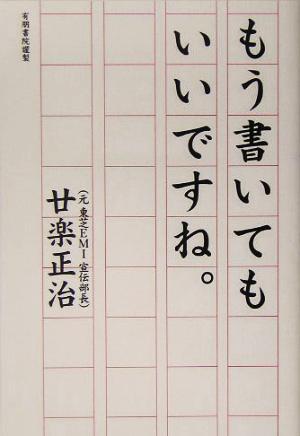 もう書いても
いいですね。
(元 東芝EMI 宣伝部長)
廿楽正治
有朋書院謹製